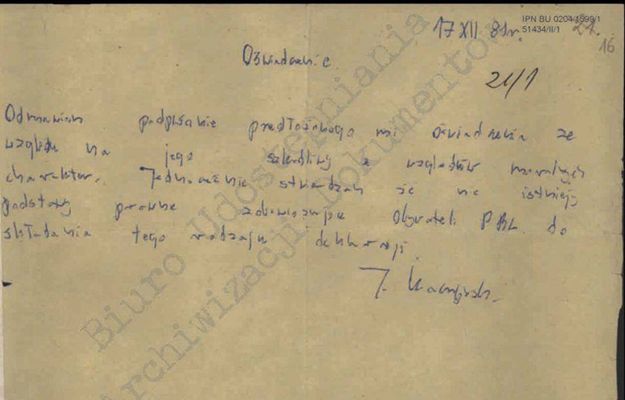 IPN BU 0204/1599/1
51434/II/1
17 XII 81r.
21.
16
Oświadczenie
21/1
Odmawiam podpisanie predłożonego mi oświadczenia ze
względu na jego szkodliwy z względów moralnych
charakter. Jednocześnie stwierdzam że nie istnieją
podstawy prawne zobowiązujące Obywateli PRL do
składania tego rodzaju deklaracji.
J. Kaczyński
Biuro Udostępniania
i Archiwizacji Dokumentów